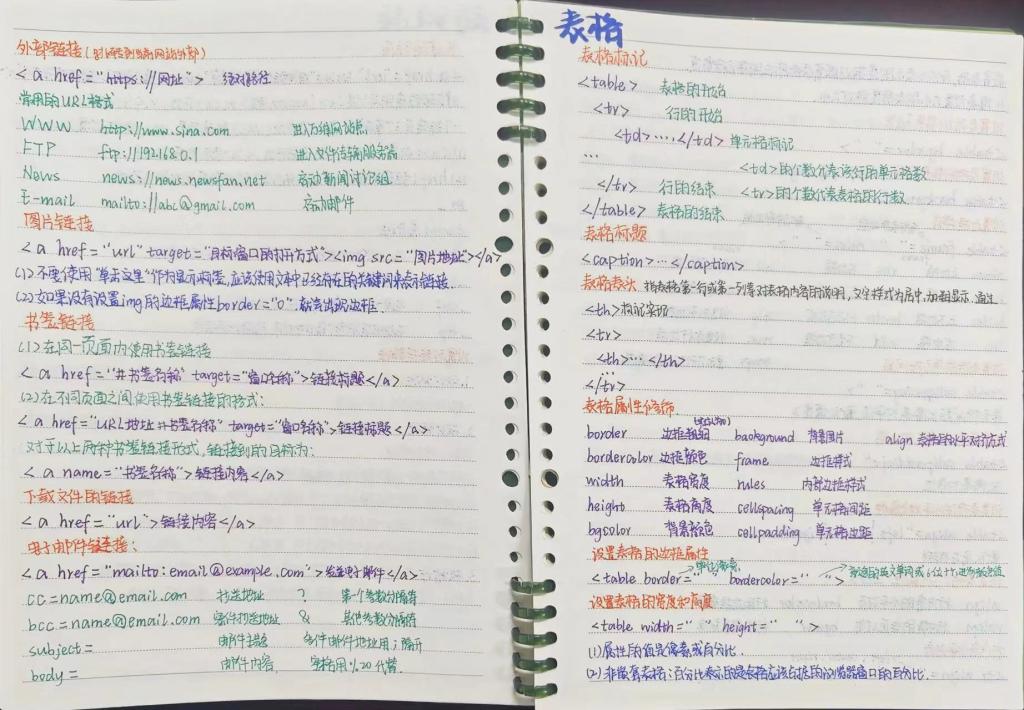 外部链接(跳转到当前网站外部)
<a href="https://网址"> 绝对路径
常用的URL格式
WWW http://www.sina.com 进入万维网站点
FTP ftp://192.168.0.1 进入文件传输服务器
News news://news.newsfan.net 启动新闻讨论组
E-mail mailto://abc@gmail.com 启动邮件
图片链接
<a href="url" target="目标窗口的打开方式"><img src="图片地址"></a>
(1)不要使用"单击这里"作为显示标签,应该使用文本中已经存在的关键词来表示链接.
(2)如果没有设置img的边框属性border="0".就会出现边框.
书签链接
(1)在同一页面内使用书签链接
<a href="#书签名称" target="窗口名称">链接标题</a>
(2)在不同页面之间使用书签链接的格式:
<a href="URL地址#书签名称" target="窗口名称">链接标题</a>
对于以上两种书签链接形式,链接到的目标为:
<a name="书签名称">链接内容</a>
下载文件的链接
<a href="url">链接内容</a>
电子邮件链接:
<a href="mailto:email@example.com">发送电子邮件</a>
cc=name@email.com 抄送地址 ? 第一个参数分隔符
bcc=name@email.com 密件抄送地址 & 其他参数分隔符
subject= 邮件主题 多个邮件地址用;隔开
body= 邮件内容 空格用%20代替.
表格
表格标记
<table> 表格的开始
<tr> 行的开始
<td>……</td> 单元格标记
... <td>的个数代表该行的单元格数
</tr> 行的结束 <tr>的个数代表表格的行数
</table> 表格的结束
表格标题
<caption>…</caption>
表格表头 指表格第一行或第一列等对表格内容的说明,文字样式为居中,加粗显示,通过
<th>标记实现
<tr>
<th>…</th>
...
</tr>
表格属性修饰
border 边框粗细 background 背景图片 align 表格的水平对齐方式
bordercolor 边框颜色 frame 边框样式
width 表格宽度 rules 内部边框样式
height 表格高度 cellspacing 单元格间距
bgcolor 背景颜色 cellpadding 单元格边距
设置表格的边框属性
<table border=" " bordercolor=" "> 颜色的英文单词或6位十六进制颜色值
单位像素
设置表格的宽度和高度
<table width=" " height=" ">
(1)属性的值是像素或百分比.
(2)非嵌套表格:百分比表示的是表格应该占据的浏览器窗口的百分比.